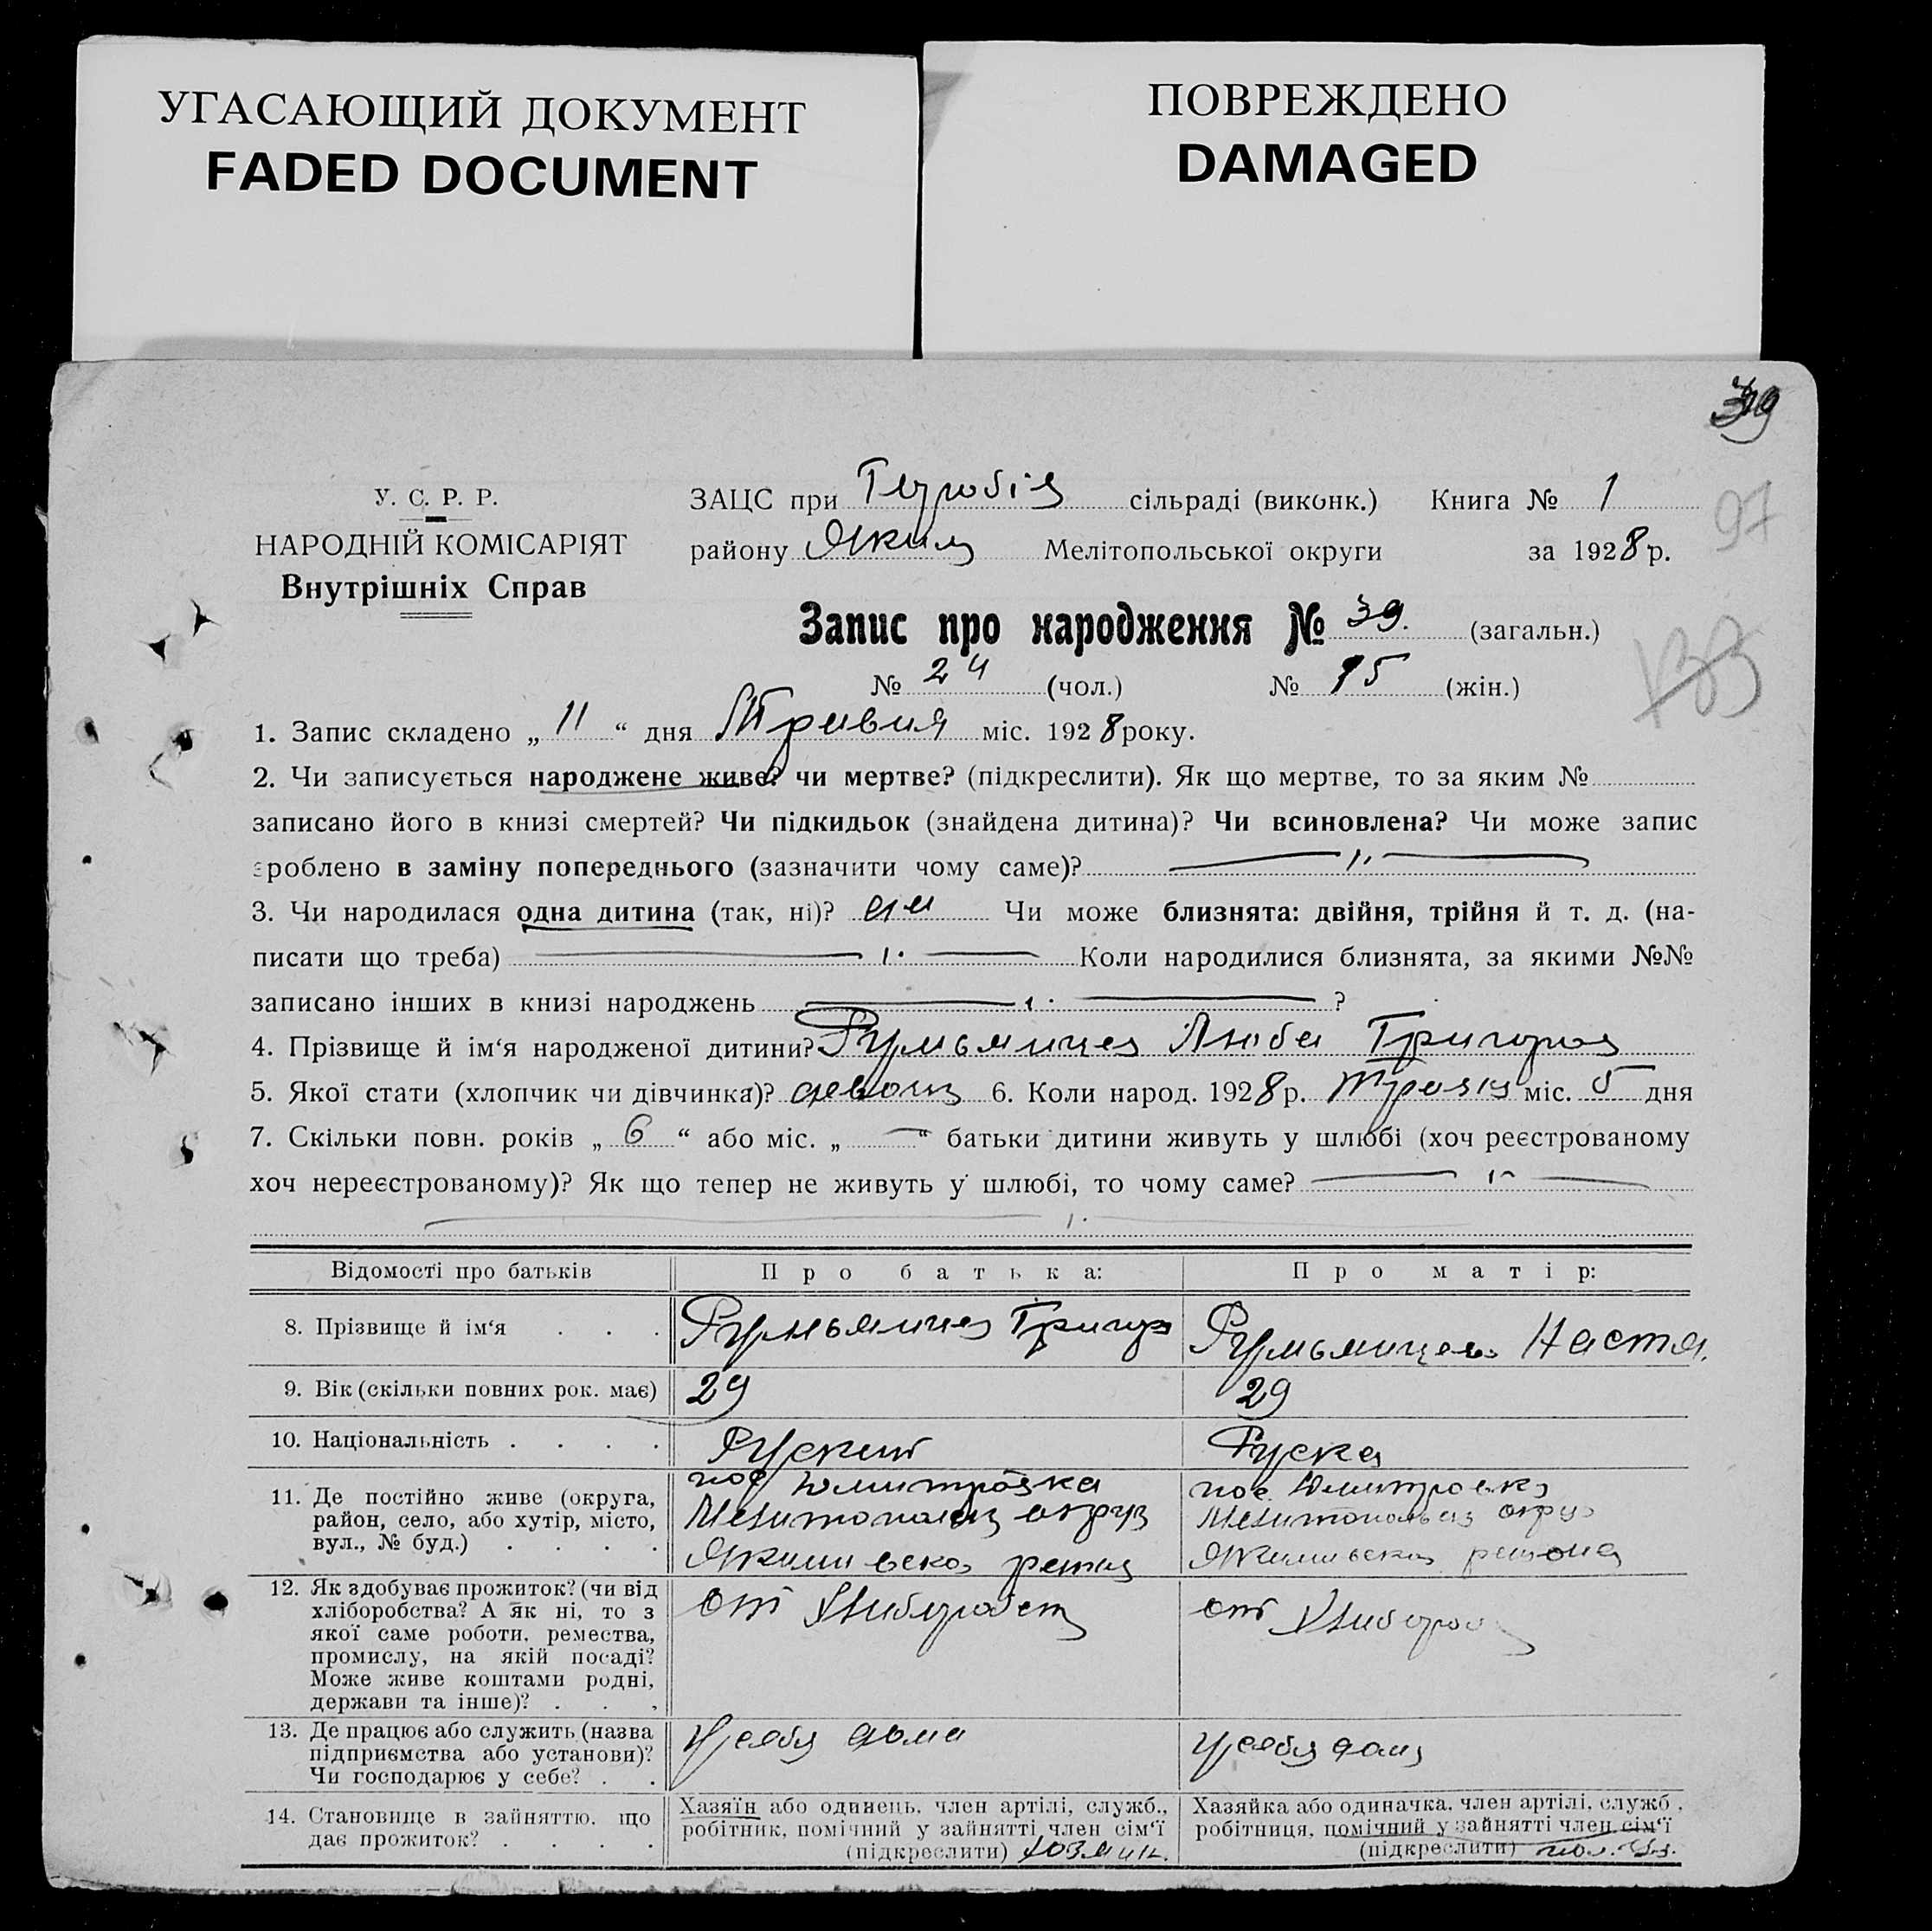 УГАСАЮЩИЙ ДОКУМЕНТ
FADED DOCUMENT
ПОВРЕЖДЕНО
DAMAGED
39
97
У. С. Р. Р.
НАРОДНІЙ КОМІСАРІЯТ
Внутрішніх Справ
ЗАЦС при сільраді (виконк.) Книга № 1
району Яким Мелітопольської округи за 1928 р.
Запис про народження № 39. (загальн.)
№ 24 (чол.) № 15 (жін.)
1. Запис складено „ 11 “ дня Травня міс. 1928 року.
2. Чи записується народжене живе? чи мертве? (підкреслити). Як що мертве, то за яким №
записано його в книзі смертей? Чи підкидьок (знайдена дитина)? Чи всиновлена? Чи може запис
зроблено в заміну попереднього (зазначити чому саме)?
3. Чи народилася одна дитина (так, ні)? Чи може близнята: двійня, трійня й т. д. (на-
писати що треба) Коли народилися близнята, за якими №№
записано інших в книзі народжень ?
4. Прізвище й ім‘я народженої дитини? Румьянцев Люба Григоров
5. Якої стати (хлопчик чи дівчинка)? 6. Коли народ. 1928 р. міс. 5 дня
7. Скільки повн. років „ 6 “ або міс. „ — “ батьки дитини живуть у шлюбі (хоч реєстрованому
хоч нереєстрованому)? Як що тепер не живуть у шлюбі, то чому саме?
Відомості про батьків Про батька: Про матір:
8. Прізвище й ім‘я . . . Румьянцев Григор Румьянцева Настя.
9. Вік (скільки повних рок. має) 29 29
10. Національність . . . . Руский Руска
11. Де постійно живе (округа,
район, село, або хутір, місто,
вул., № буд.) . . . .
пос Юмитровка
Мелитополь округ
Якимивско
пос. Юмитровка
Мелитополь округ
Якимивско района
12. Як здобуває прожиток? (чи від
хліборобства? А як ні, то з
якої саме роботи, ремества,
промислу, на якій посаді?
Може живе коштами родні,
держави та інше)? . . .
от Хлибороб
от Хлибороб
13. Де працює або служить (назва
підприємства або установи)?
Чи господарює у себе? . .
у себя дома
у себя дома
14. Становище в зайняттю, що
дає прожиток? . . . .
Хазяїн або одинець, член артілі, служб.,
робітник, помічний у зайнятті член сім‘ї
(підкреслити)
Хазяйка або одиначка, член артілі, служб.,
робітниця, помічний у зайнятті член сім‘ї
(підкреслити)